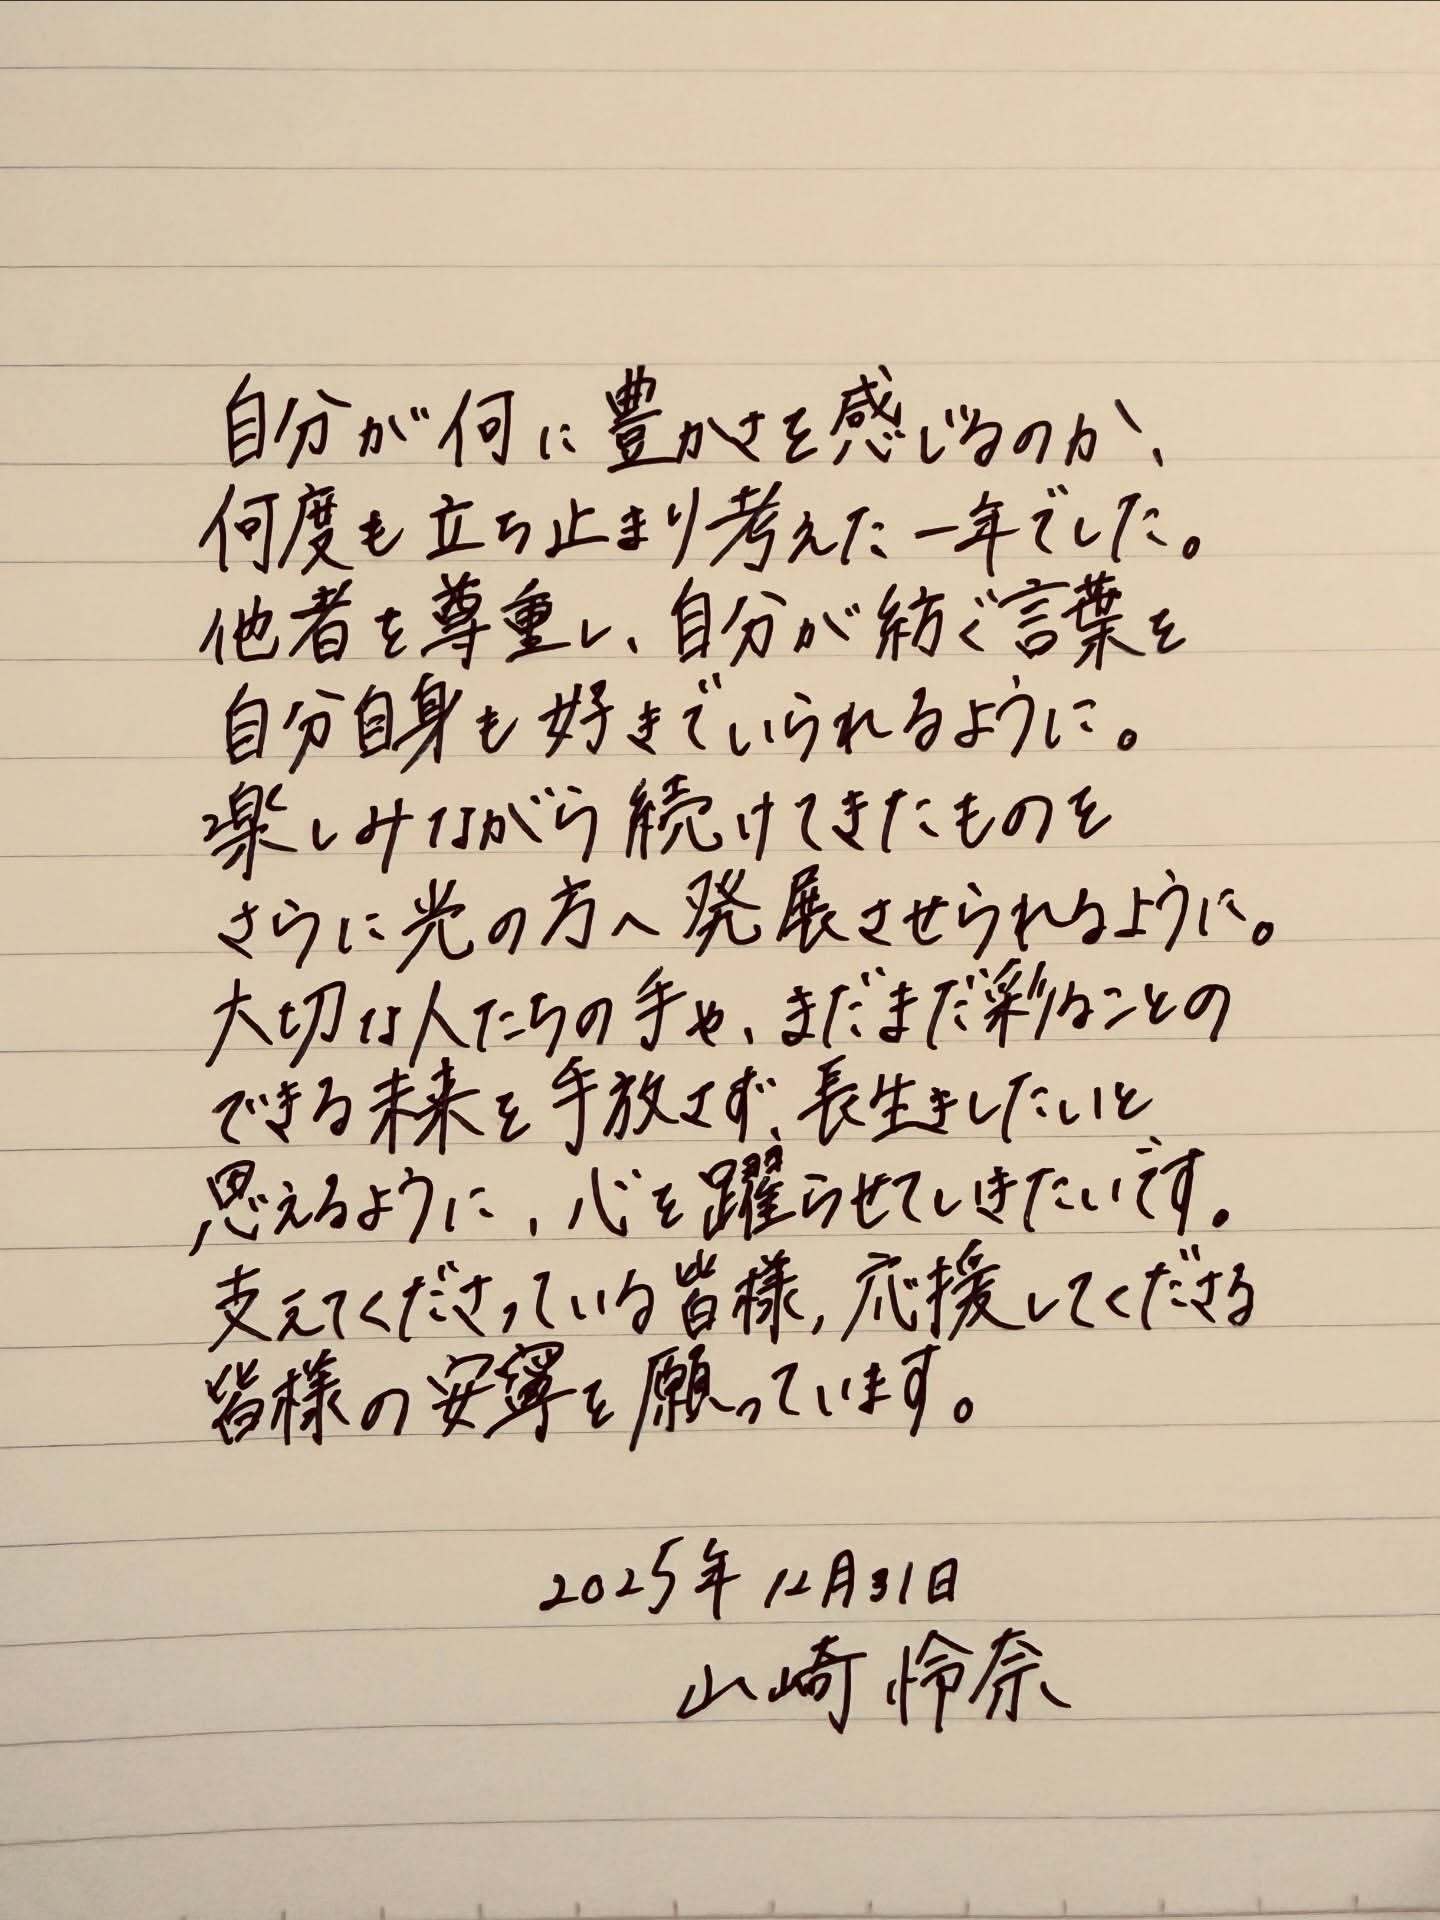 自分が何に豊かさを感じるのか、
何度も立ち止まり考えた一年でした。
他者を尊重し、自分が紡ぐ言葉を
自分自身も好きでいられるように。
楽しみながら続けてきたものを
さらに光の方へ発展させられるように。
大切な人たちの手や、まだまだ彩ることの
できる未来を手放さず、長生きしたいと
思えるように、心を躍らせていきたいです。
支えてくださっている皆様，応援してくださる
皆様の安寧を願っています。
2025年12月31日
山崎怜奈